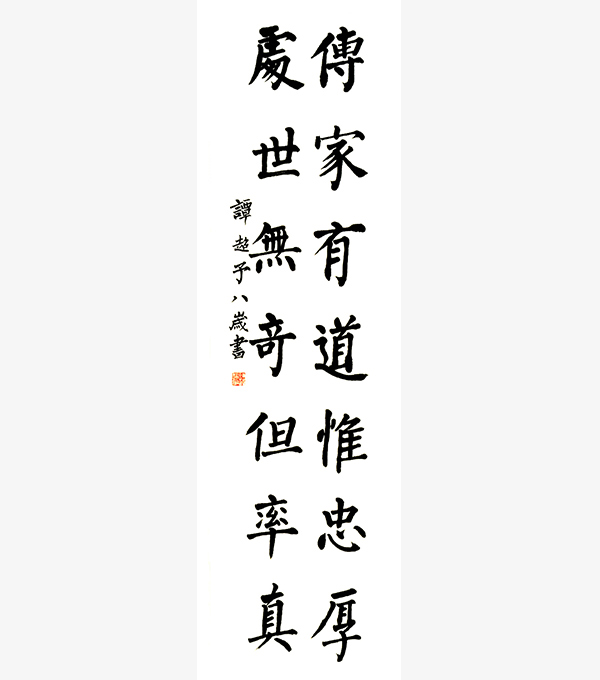 傳家有道惟忠厚
處世無奇但率真
譚趁予八歲書